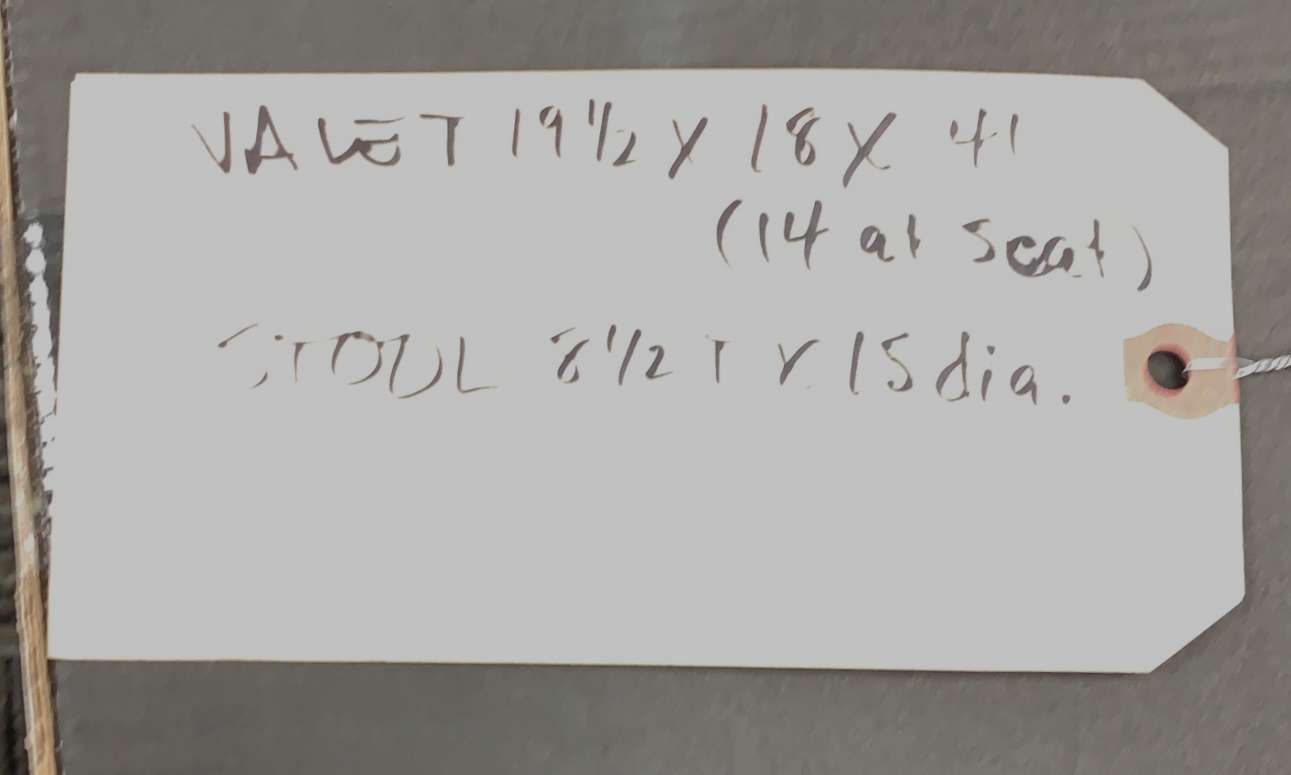 VALET 19 1/2 X 18 X 41
(14 at Seat)
STOOL 8 1/2 T X 15 dia.